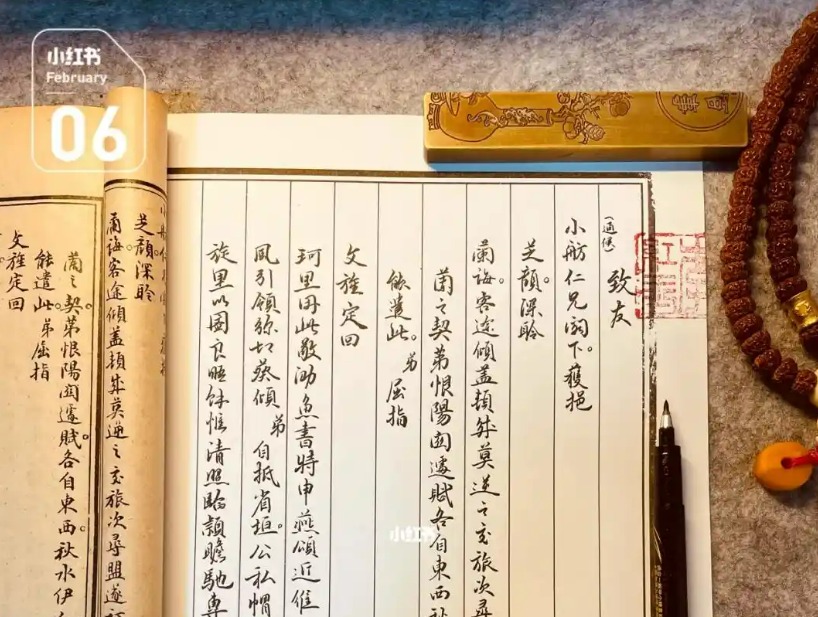 小红书
February
06
(通候)
致友
小舫仁兄閣下。獲挹
芝顔深聆
蘭誨。客途傾盖頓成莫逆之交旅次尋
蘭之契弟恨陽関遽賦各自東西秋
能遣此。弟屈指
文旌定回
珂里用此敬泐魚書特申燕頌近惟
風引領弥切葵傾弟自抵省垣。公私
旋里以图良晤餘惟清照臨穎瞻馳専
芝顔深聆
蘭誨。客途傾盖頓成莫逆之交旅次尋盟遂
蘭之契。弟恨陽関遽賦。各自東西。秋水伊
能遣此。弟屈指
文旌定回
小红书